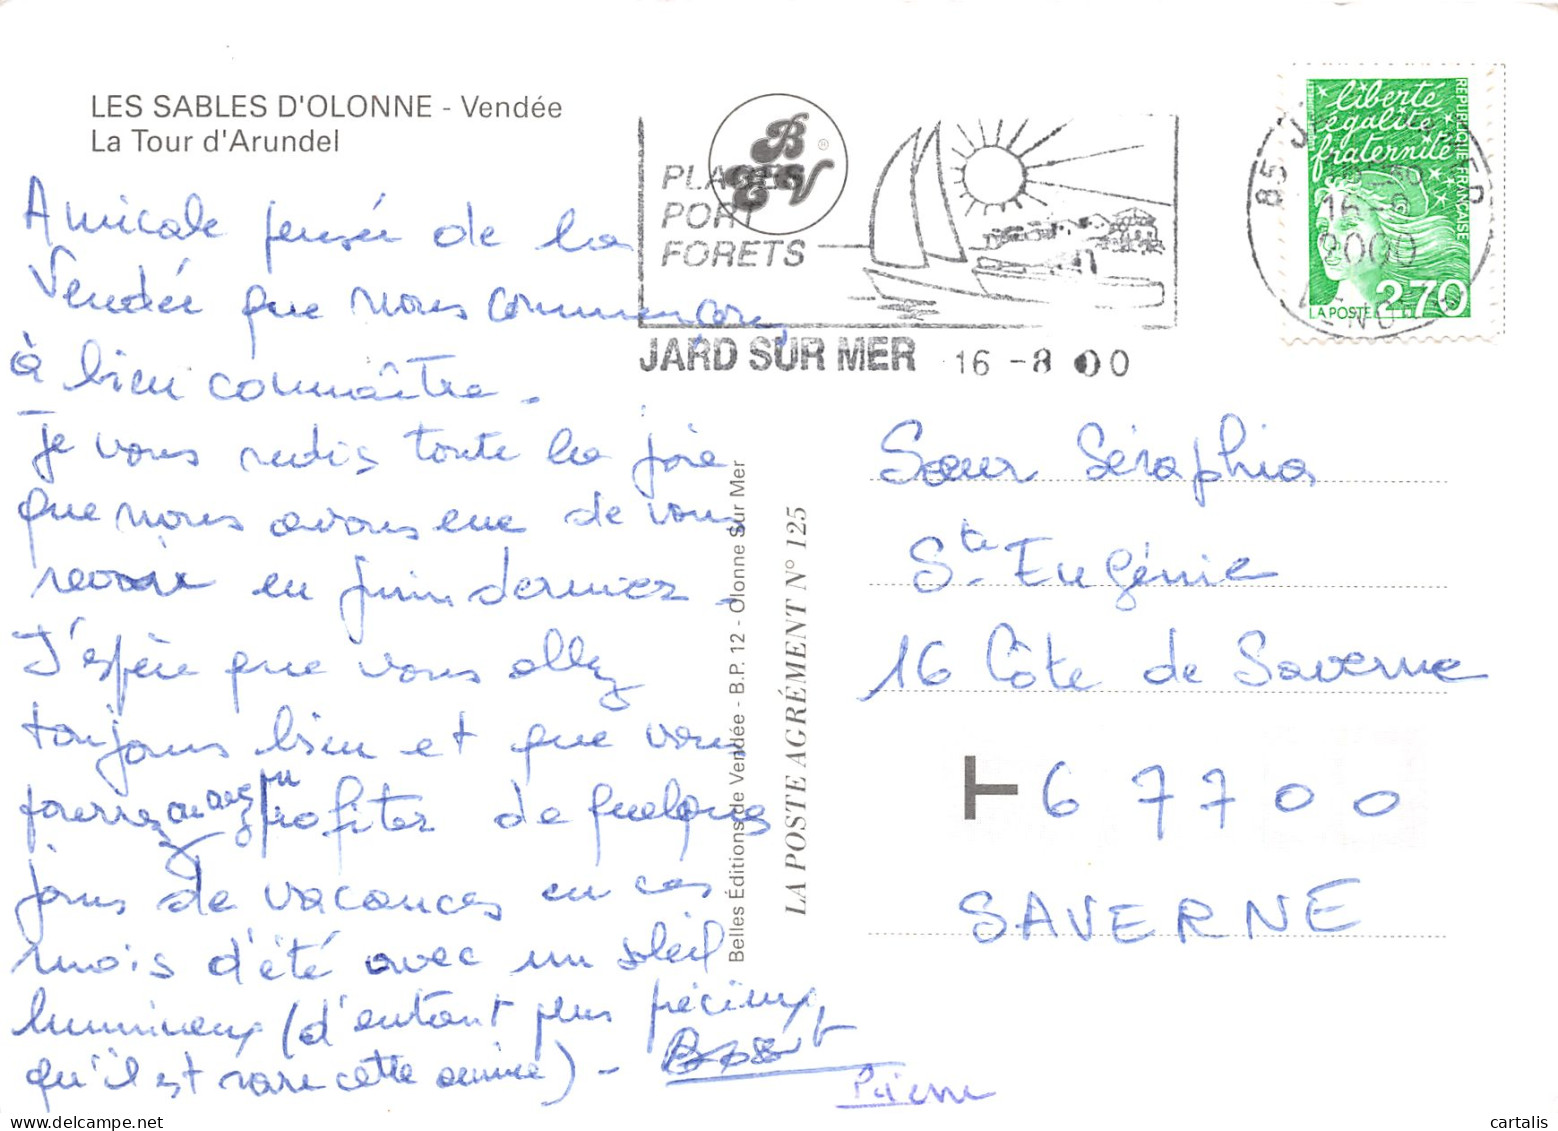 LES SABLES D'OLONNE - Vendée
La Tour d'Arundel
Amicale pensée de la
Vendée que nous commençons
à bien connaître.
Je vous redis toute la joie
que nous avons eue de vous
revoir en juin dernier.
J'espère que vous allez
toujours bien et que vous
pourrez ou avez pu profiter de quelques
jours de vacances en ces
mois d'été avec un soleil
lumineux (d'autant plus précieux
qu'il est rare cette année) -
Pierre
PLAGES
PORT
FORETS
B
®
JARD SUR MER 16 -8 00
liberté
égalité
fraternité
REPUBLIQUE FRANÇAISE
LA POSTE 2,70
85
16-8
2000
Belles Éditions de Vendée - B.P. 12 - Olonne Sur Mer
LA POSTE AGRÉMENT N° 125
Sœur Séraphia
Ste Eugénie
16 Côte de Saverne
67700
SAVERNE
cartalis